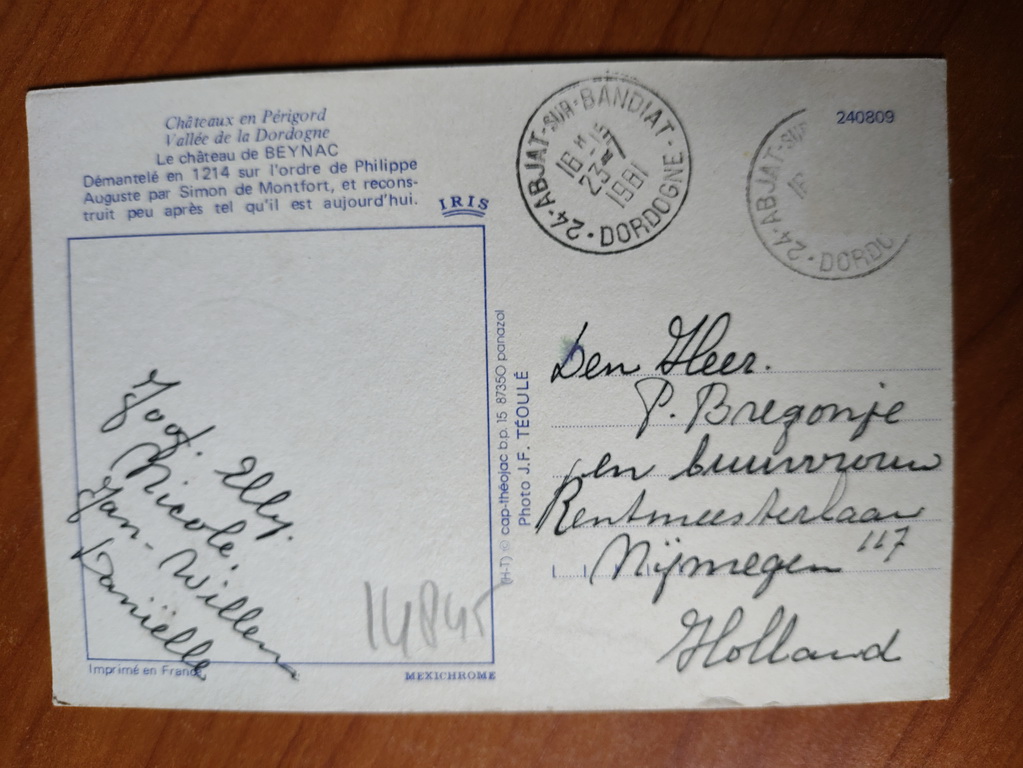 Châteaux en Périgord
Vallée de la Dordogne
Le château de BEYNAC
Démantelé en 1214 sur l'ordre de Philippe
Auguste par Simon de Montfort, et recons-
truit peu après tel qu'il est aujourd'hui.
IRIS
Joop. Elly.
Nicole.
Jan-Willem
Daniëlle
14845
Imprimé en France
MEXICHROME
(H-T) © cap-théojac b.p. 15 87350 panazol
Photo J.F. TÉOULÉ
24·ABJAT-SUR-BANDIAT·DORDOGNE
16 H
23-7
1981
24·ABJAT-SUR
DORDO
240809
Den Heer.
P. Bregonje
en buurvrouw
Rentmeesterlaan
117
Nijmegen
Holland